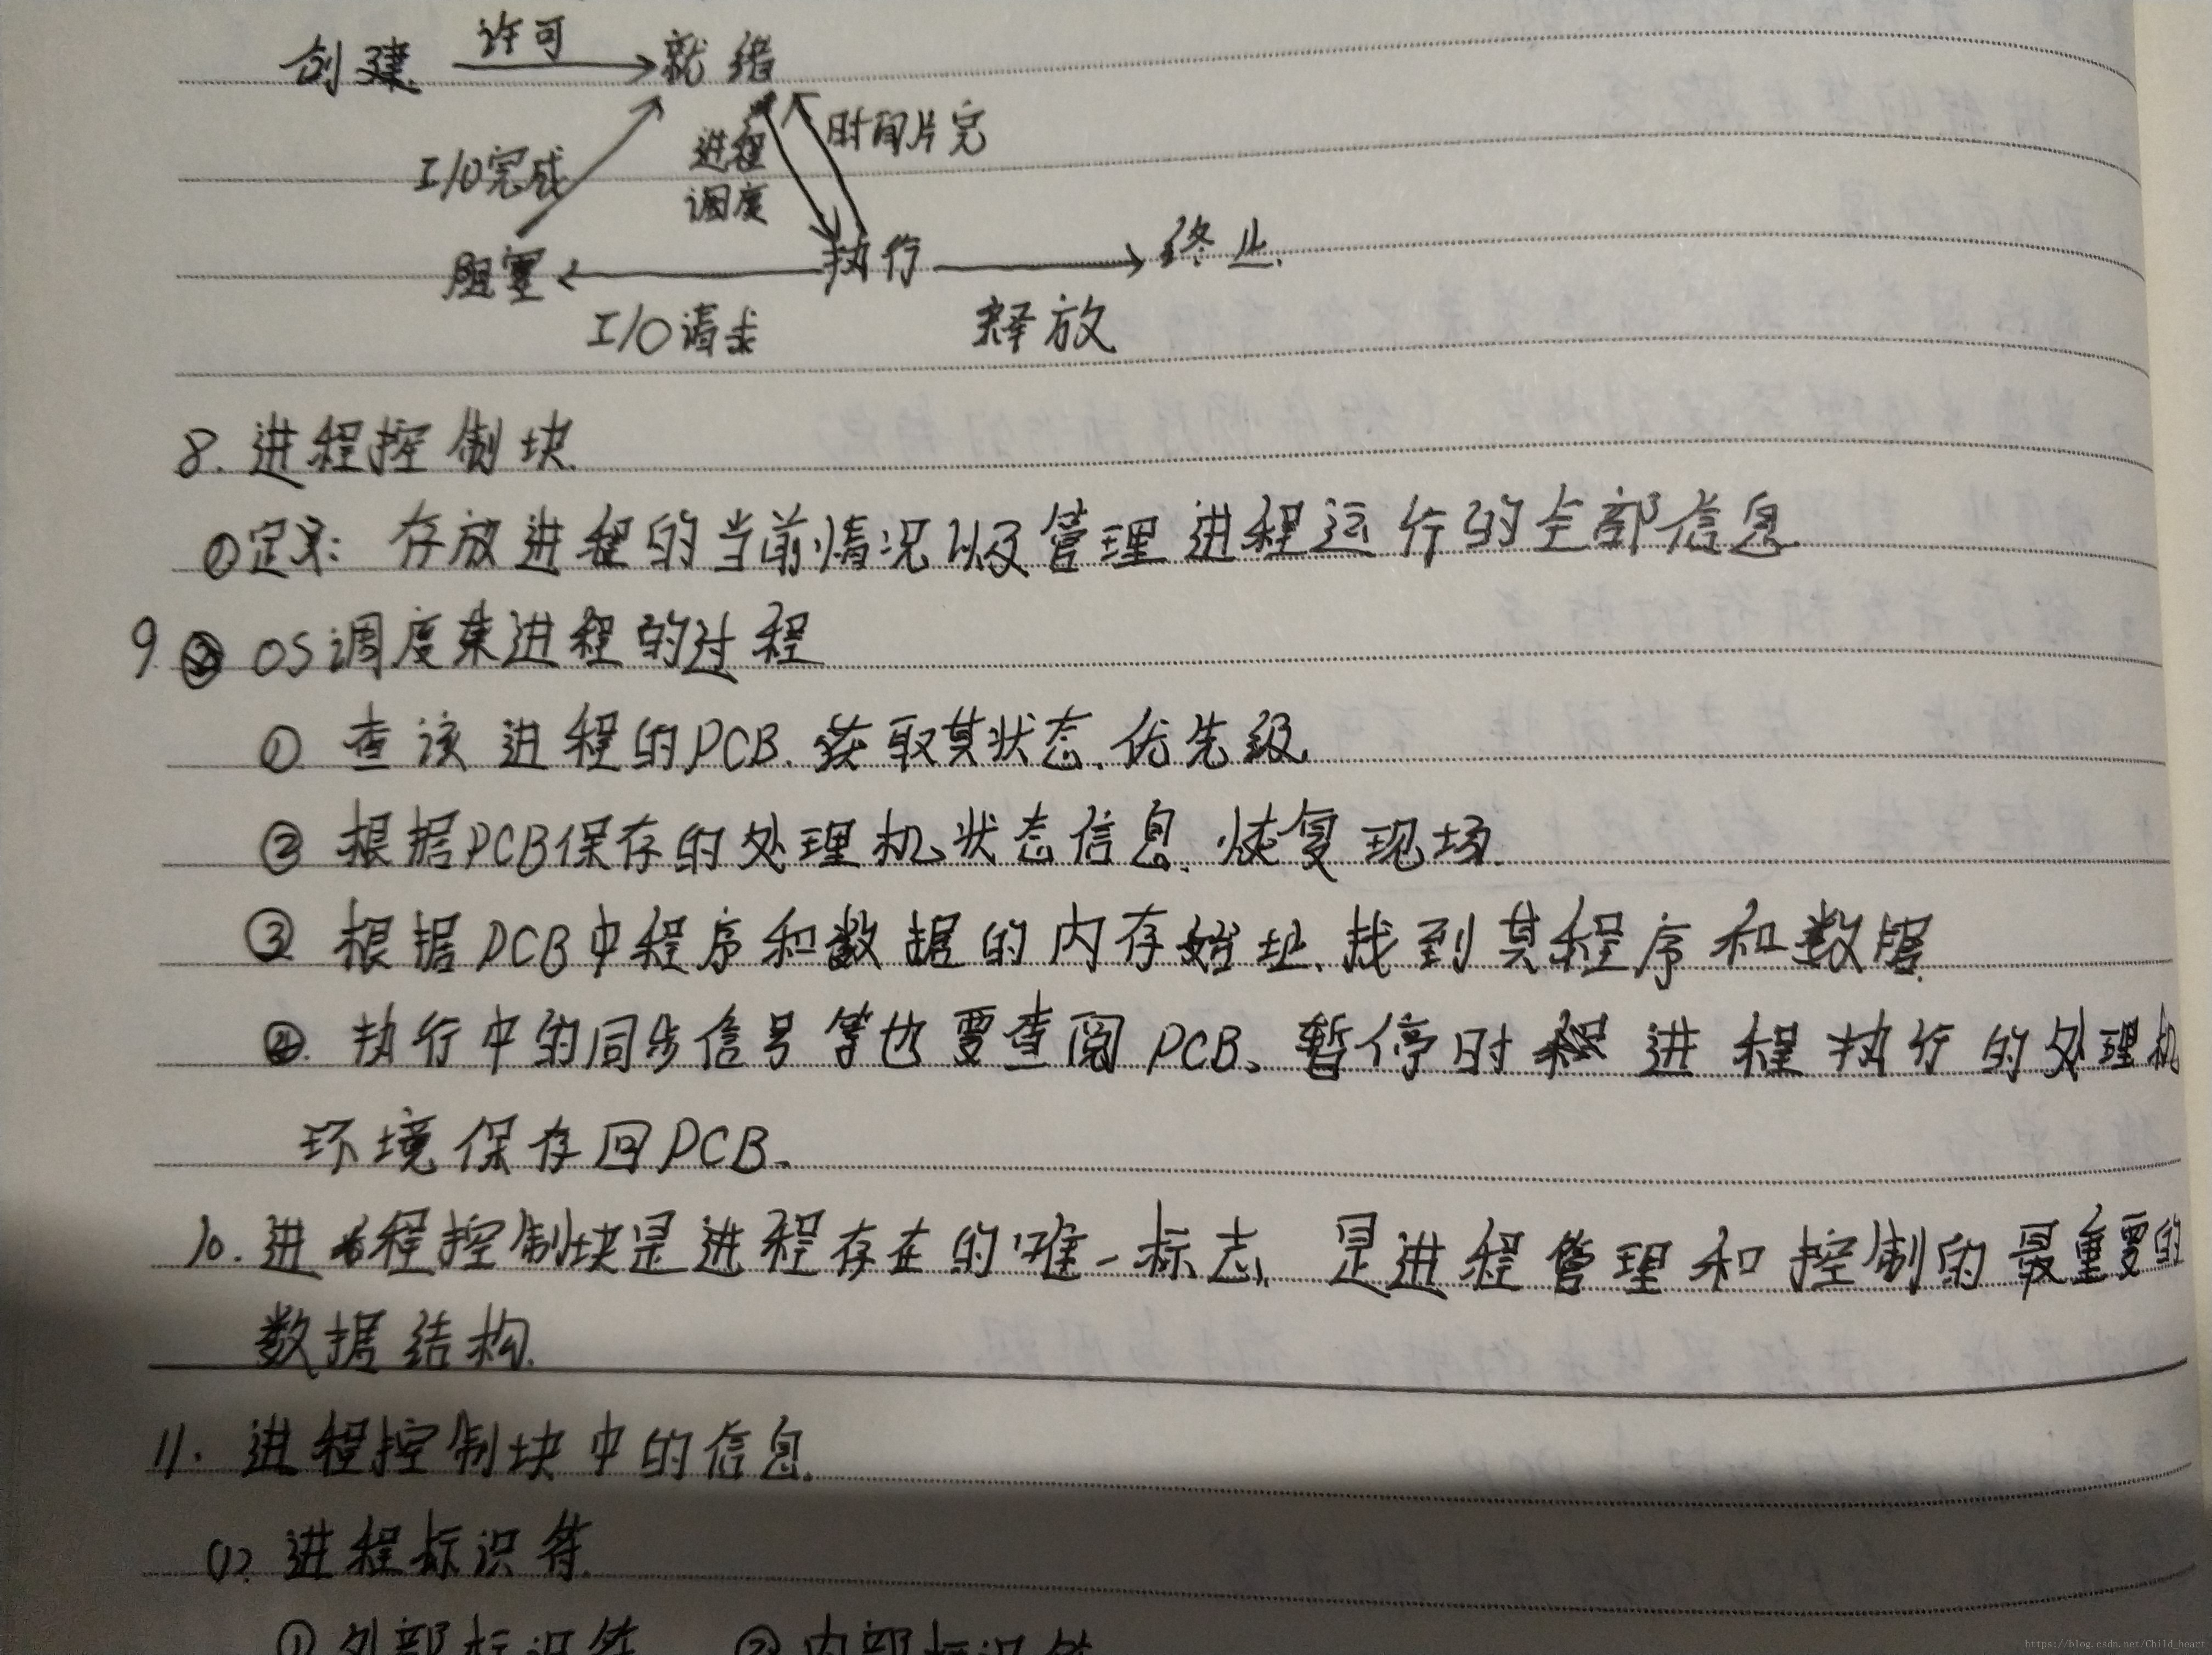 许可
创建 就绪
时间片完
进程
I/O完成
调度
阻塞 执行 终止.
I/O请求 释放
8. 进程控制块.
①定义: 存放进程的当前情况以及管理进程运行的全部信息
9 OS调度某进程的过程
① 查该进程的PCB. 获取其状态、优先级
② 根据PCB保存的处理机状态信息. 恢复现场.
③ 根据PCB中程序和数据的内存始址. 找到其程序和数据.
④. 执行中的同步信号等也要查阅PCB、暂停时 进程执行的处理机
环境保存回PCB.
10. 进程控制块是进程存在的唯一标志. 是进程管理和控制的最重要的
数据结构.
11. 进程控制块中的信息.
(1). 进程标识符.
①外部标识符 ②内部标识符
https://blog.csdn.net/Child_heart